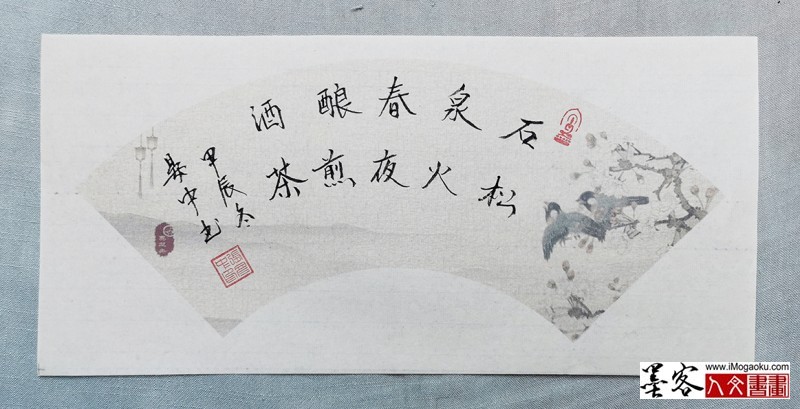 石泉春酿酒
松火夜煎茶
甲辰冬
中书
www.iMogaoku.com
墨客人文書畫